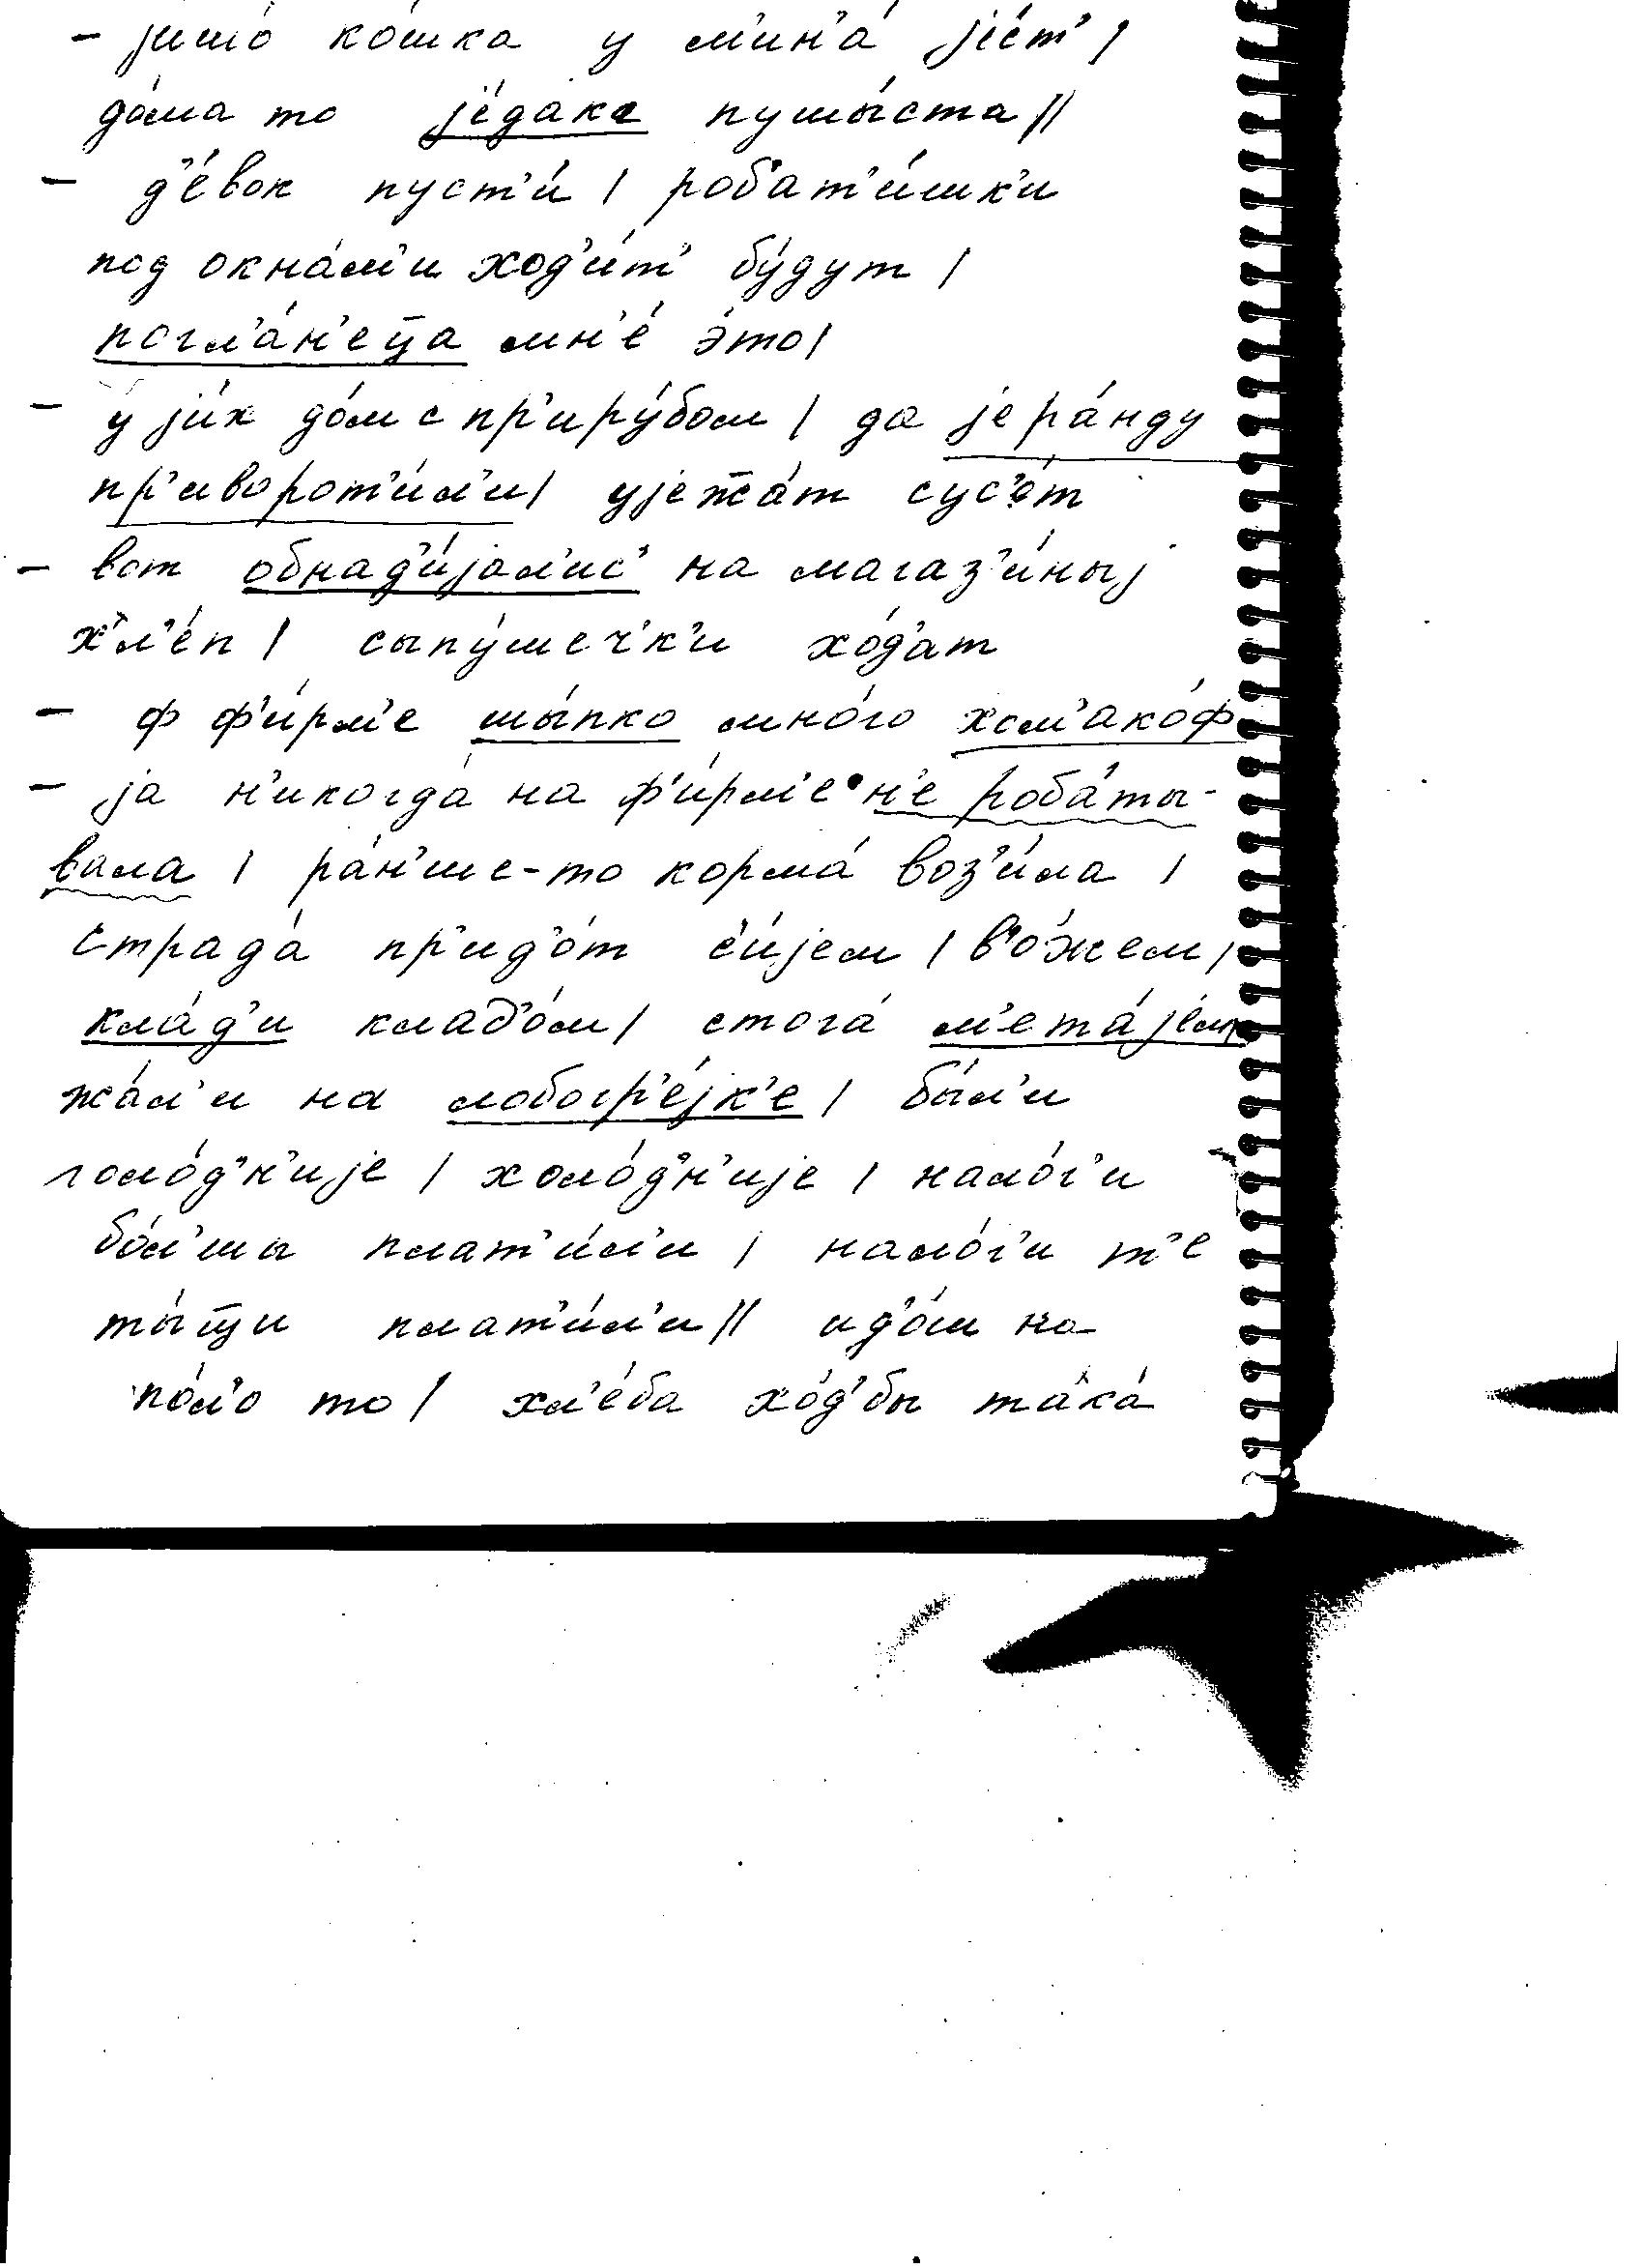 – jишо́ ко́шка у м'ин'а́ jе́ст' |
до́ма то jе́дака пушы́ста ||
– д'е́вок пуст'и́ | роб'ат'и́шк'и
под окна́м'и ход'и́т' бу́дут |
погл'а́н'еца мн'е́ э́то |
– у jи́х до́м с пр'иру́бом | да jера́нду
пр'иворот'и́л'и | уjежа́т сус'е́т
– вот обнад'и́jал'ис' на магаз'и́ныj
х'л'е́п | сыпу́шеч'к'и хо́д'ат
– ф ф'и́рм'е шы́пко мно́го хом'ако́ф
– jа н'икогда́ на ф'и́рм'е н'е роба́ты-
вала | ра́н'ше-то корма́ воз'и́ла |
страда́ пр'ид'о́т с'и́jем | в'о́жем |
кла́д'и клад'о́м | стога́ м'ета́jем
жа́л'и на лобогр'е́jк'е | бы́л'и
голо́д'н'иjе | холо́д'н'иjе | нало́г'и
бо́л'шы плат'и́л'и | нало́г'и т'е
ты́щи плат'и́л'и || ид'о́м на
по́л'о то | хл'е́ба хо́д' бы така́